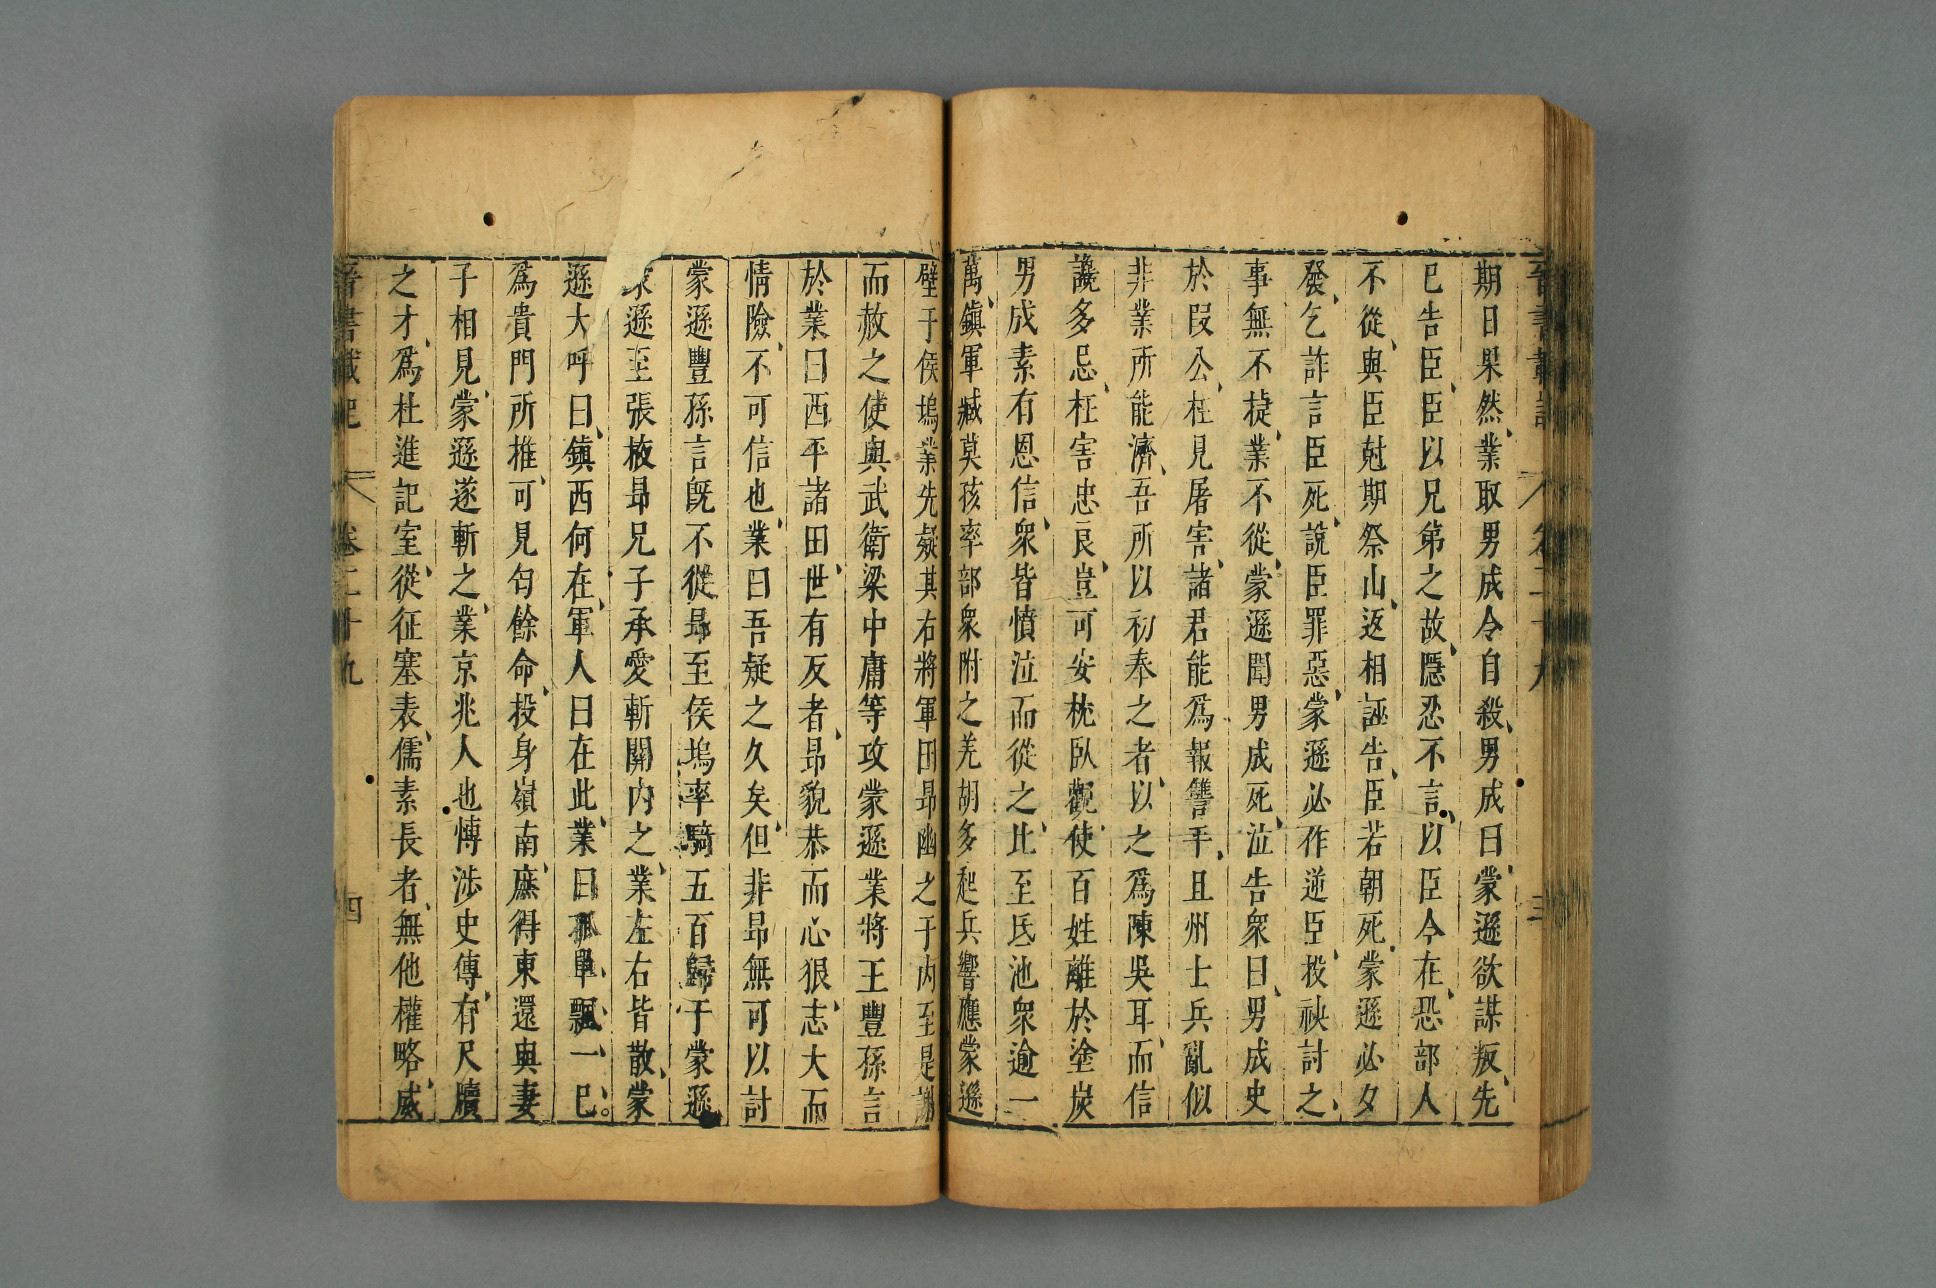 期日果然業取男成令自殺男成曰蒙遜欲謀叛先
已告臣臣以兄弟之故隱忍不言以臣今在恐部人
不從與臣尅期祭山返相誣告臣若朝死蒙遜必夕
發乞詐言臣死說臣罪惡蒙遜必作逆臣投袂討之
事無不捷業不從蒙遜聞男成死泣告衆曰男成史
於叚公枉見屠害諸君能爲報讐乎且州士兵亂似
非業所能濟吾所以初奉之者以之爲陳吳耳而信
讒多忌枉害忠良豈可安枕臥觀使百姓離於塗炭
男成素有恩信衆皆憤泣而從之比至氐池衆逾一
萬鎭軍臧莫孩率部衆附之羌胡多起兵響應蒙遜
壁于侯塢業先疑其右將軍田昂幽之于内至是謝
而赦之使與武衛梁中庸等攻蒙遜業將王豐孫言
於業曰西平諸田世有反者昂貌恭而心狠志大而
情險不可信也業曰吾疑之久矣但非昂無可以討
蒙遜豐孫言旣不從昂至侯塢率騎五百歸于蒙遜
蒙遜至張掖昂兄子承愛斬關内之業左右皆散蒙
遜大呼曰鎭西何在軍人曰在此業曰孤單飄一已
爲貴門所推可見匄餘命投身嶺南庶得東還與妻
子相見蒙遜遂斬之業京兆人也博涉史傳有尺牘
之才爲杜進記室從征塞表儒素長者無他權略威
晋書載記 卷二十九 四